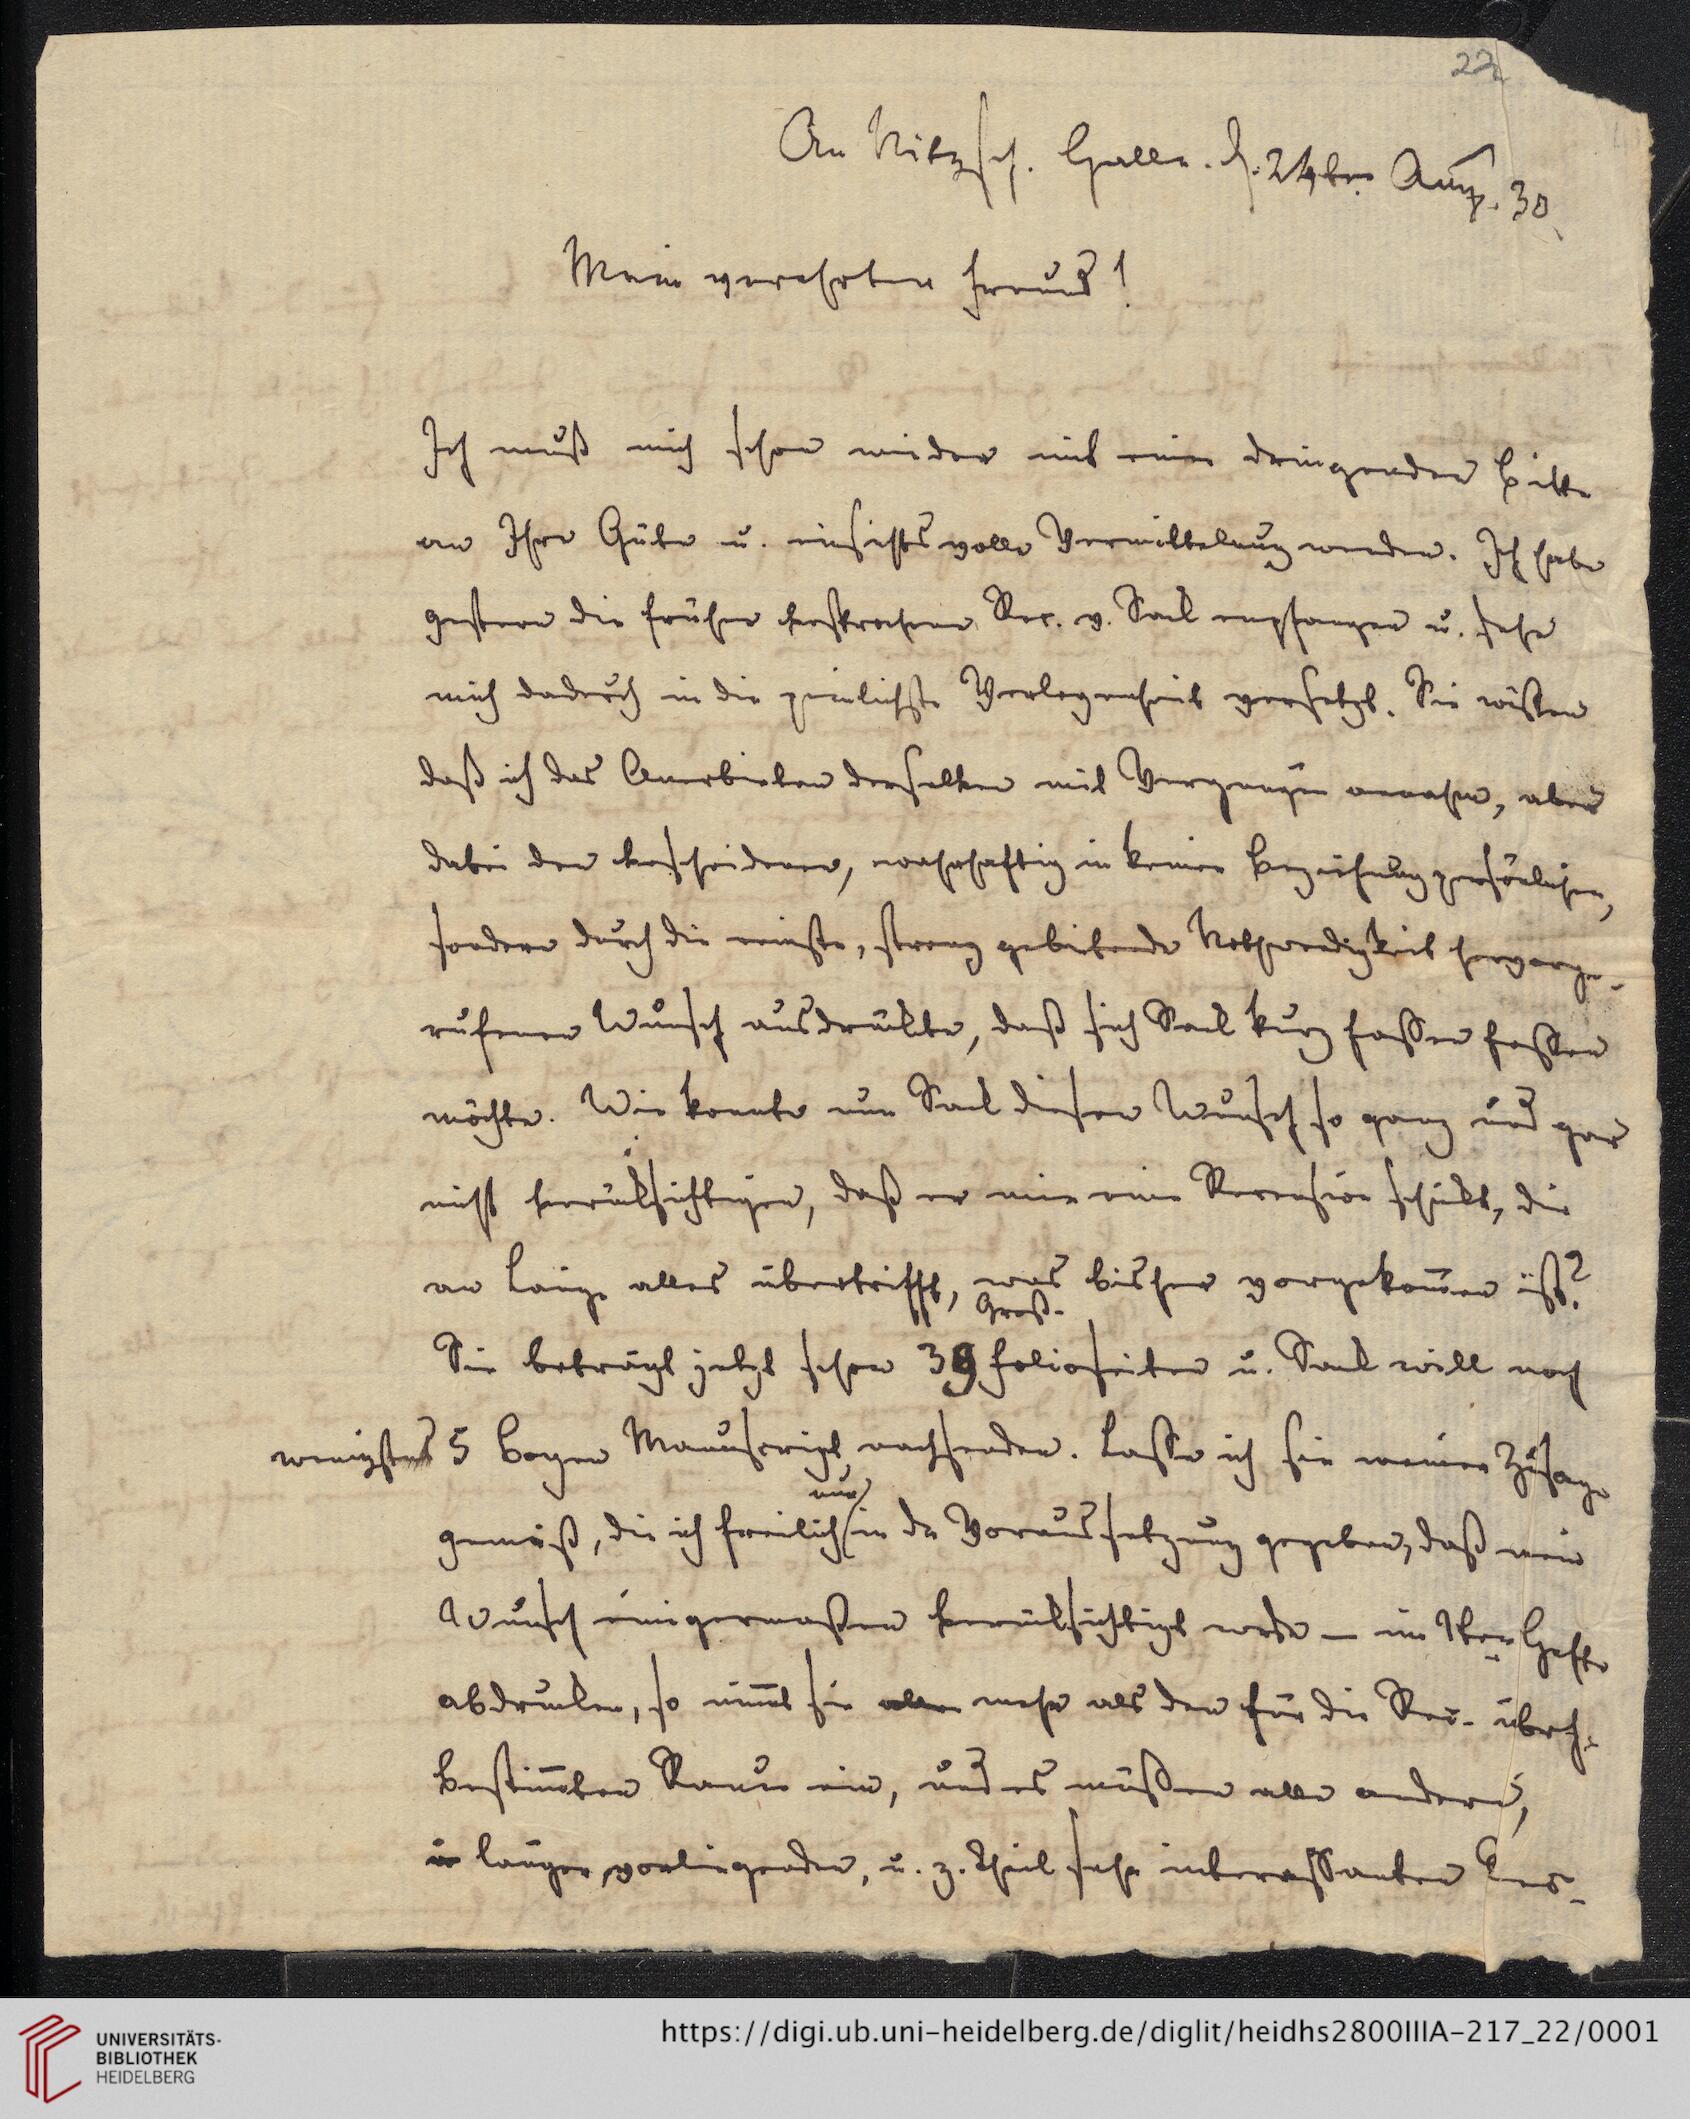 22
An Nitzsch. Halle. d. 24ten Aug. 30
Mein verehrter Freund!
Ich muß mich schon wieder mit einer dringenden Bitte
an Ihre Güte u. einsichtsvolle Vermittelung wenden. Ich habe
gestern die früher besprochene Rec. v. Sack empfangen u. sehe
mich dadurch in die peinlichste Verlegenheit versetzt. Sie wißen
daß ich das Anerbieten derselben mit Vergnügen annahm, aber
dabei den bescheidenen, wahrhaftig in keiner Beziehung persönlichen,
sondern durch die reinste, streng gebietende Nothwendigkeit hervorge-
rufenen Wunsch ausdrückte, daß sich Sack kurz fassen fassen
möchte. Wie konnte nun Sack diesen Wunsch so ganz und gar
nicht berücksichtigen, daß er mir eine Recension schickt, die
an Länge alles übertrifft, was bisher vorgekommen ist?
Groß-
Sie beträgt jetzt schon 39 Folioseiten u. Sack will noch
wenigstens 5 Bogen Manuscript nachsenden. Lasse ich sie meiner Zusage
nur
gemäß, die ich freilich in der Voraussetzung gegeben, daß mein
Wunsch einigermaßen berücksichtigt werde – im Hefte
abdrucken, so nimmt sie mehr als den für die Rec. übrh.
bestimmten Raum ein, und es müßen alle andern,
länger vorliegenden, u. z. Theil sehr interessanten Rec-
UNIVERSITÄTS-
BIBLIOTHEK
HEIDELBERG
https://digi.ub.uni-heidelberg.de/diglit/heidhs2800IIIA-217_22/0001